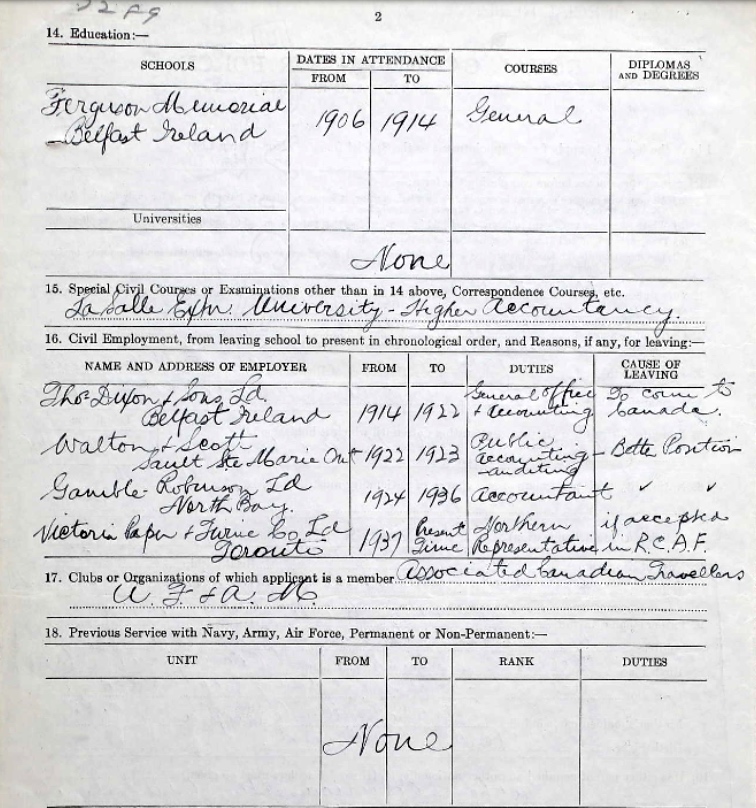 2
14. Education:—
SCHOOLS
DATES IN ATTENDANCE
FROM
TO
COURSES
DIPLOMAS
AND DEGREES
Ferguson Memorial
Belfast Ireland
1906
1914
General
Universities
None
15. Special Civil Courses or Examinations other than in 14 above, Correspondence Courses, etc.
LaSalle Extn. University - Higher Accountancy.
16. Civil Employment, from leaving school to present in chronological order, and Reasons, if any, for leaving:—
NAME AND ADDRESS OF EMPLOYER
FROM
TO
DUTIES
CAUSE OF
LEAVING
Thos Dixon & Sons Ld.
Belfast Ireland
1914
1922
General office
& accounting
To come to
Canada.
Walton & Scott
Sault Ste Marie Ont
1922
1923
Public
accounting
-auditing
Better Position
Gamble Robinson Ld
North Bay.
1924
1936
accountant
✓ ✓
Victoria Paper & Twine Co Ld
Toronto
1937
Present
Time
Northern
Representative
if accepted
in R.C.A.F.
17. Clubs or Organizations of which applicant is a member Associated Canadian Travellers
A. F & A. M.
18. Previous Service with Navy, Army, Air Force, Permanent or Non-Permanent:—
UNIT
FROM
TO
RANK
DUTIES
None